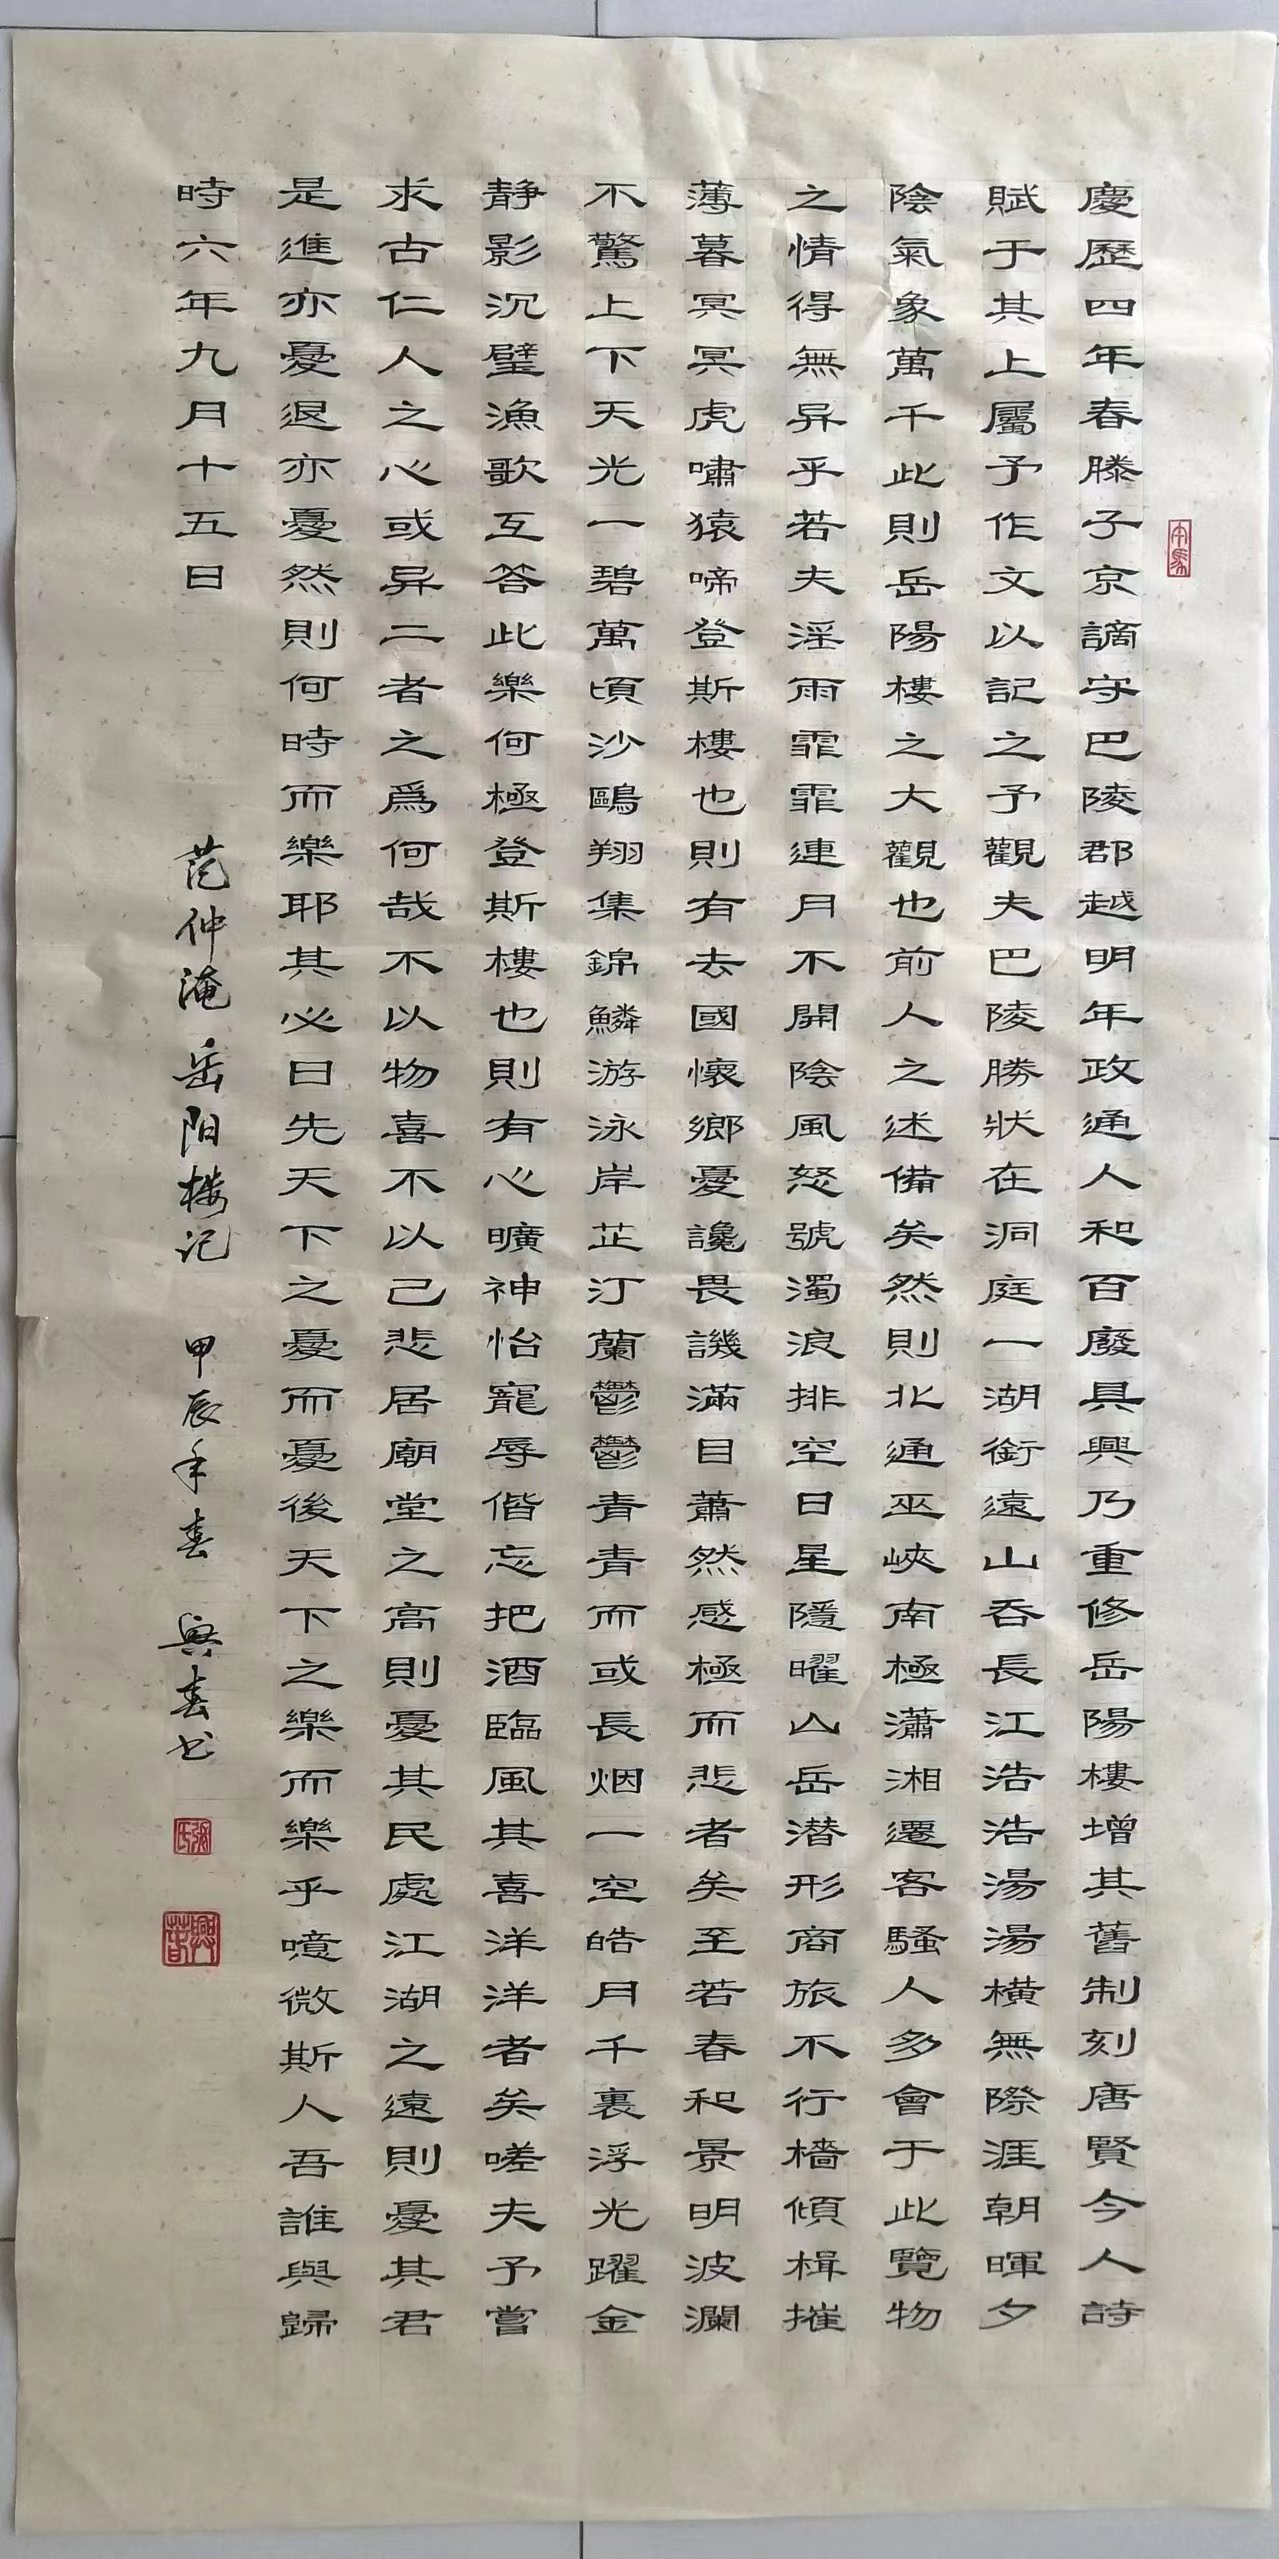 慶歷四年春滕子京謫守巴陵郡越明年政通人和百廢具興乃重修岳陽樓增其舊制刻唐賢今人詩
賦于其上屬予作文以記之予觀夫巴陵勝狀在洞庭一湖銜遠山吞長江浩浩湯湯橫無際涯朝暉夕
陰氣象萬千此則岳陽樓之大觀也前人之述備矣然則北通巫峽南極瀟湘遷客騷人多會于此覽物
之情得無异乎若夫淫雨霏霏連月不開陰風怒號濁浪排空日星隱曜山岳潜形商旅不行檣傾楫摧
薄暮冥冥虎嘯猿啼登斯樓也則有去國懷鄉憂讒畏譏滿目蕭然感極而悲者矣至若春和景明波瀾
不驚上下天光一碧萬頃沙鷗翔集錦鱗游泳岸芷汀蘭鬱鬱青青而或長烟一空皓月千裏浮光躍金
静影沉璧漁歌互答此樂何極登斯樓也則有心曠神怡寵辱偕忘把酒臨風其喜洋洋者矣嗟夫予嘗
求古仁人之心或异二者之爲何哉不以物喜不以己悲居廟堂之高則憂其民處江湖之遠則憂其君
是進亦憂退亦憂然則何時而樂耶其必曰先天下之憂而憂後天下之樂而樂乎噫微斯人吾誰與歸
時六年九月十五日
范仲淹岳阳楼记 甲辰年春 興春书
張氏
興春